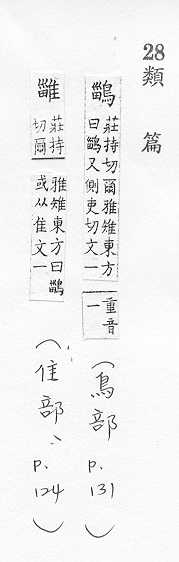 28
類篇
鶅
莊持切爾雅雉東方
曰鶅又側吏切文一
重音
一
(鳥部 p.131)
莊持
切爾
雅雉東方曰鶅
或从隹文一
(隹部、p.124)